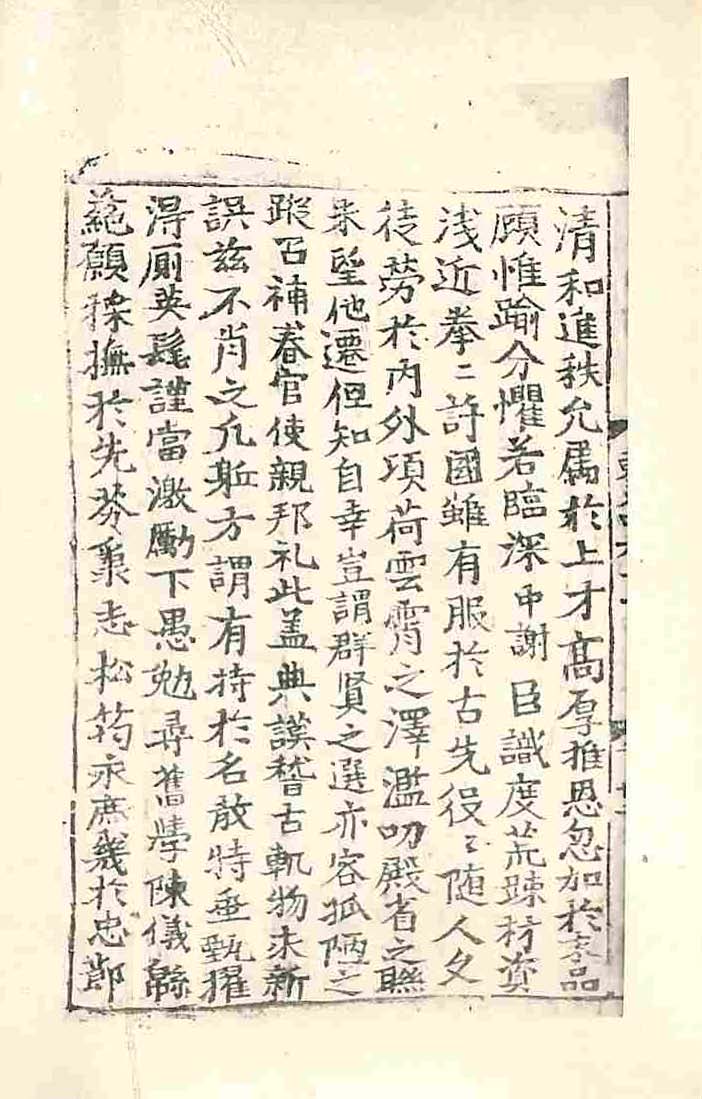 清和進秩允属於上才髙厚推恩忽加於末品
顧惟踰分懼若臨深中謝臣識度荒踈材資
浅近拳〻許國雖有服於古先役〻随人久
徒勞於内外頃荷雲霄之澤濫叨殿省之聮
未望他遷但知自幸豈謂群賢之選亦容孤陋之
蹤召補春官使親邦礼此盖典謨稽古軌物求新
誤玆不肖之凡軀方謂有持於名敎特垂甄擢
淂厠英髦謹當激勵下愚勉尋舊學陳儀緜
蕝願採撫於先芬

志松筠永庶㡬於忠鄰